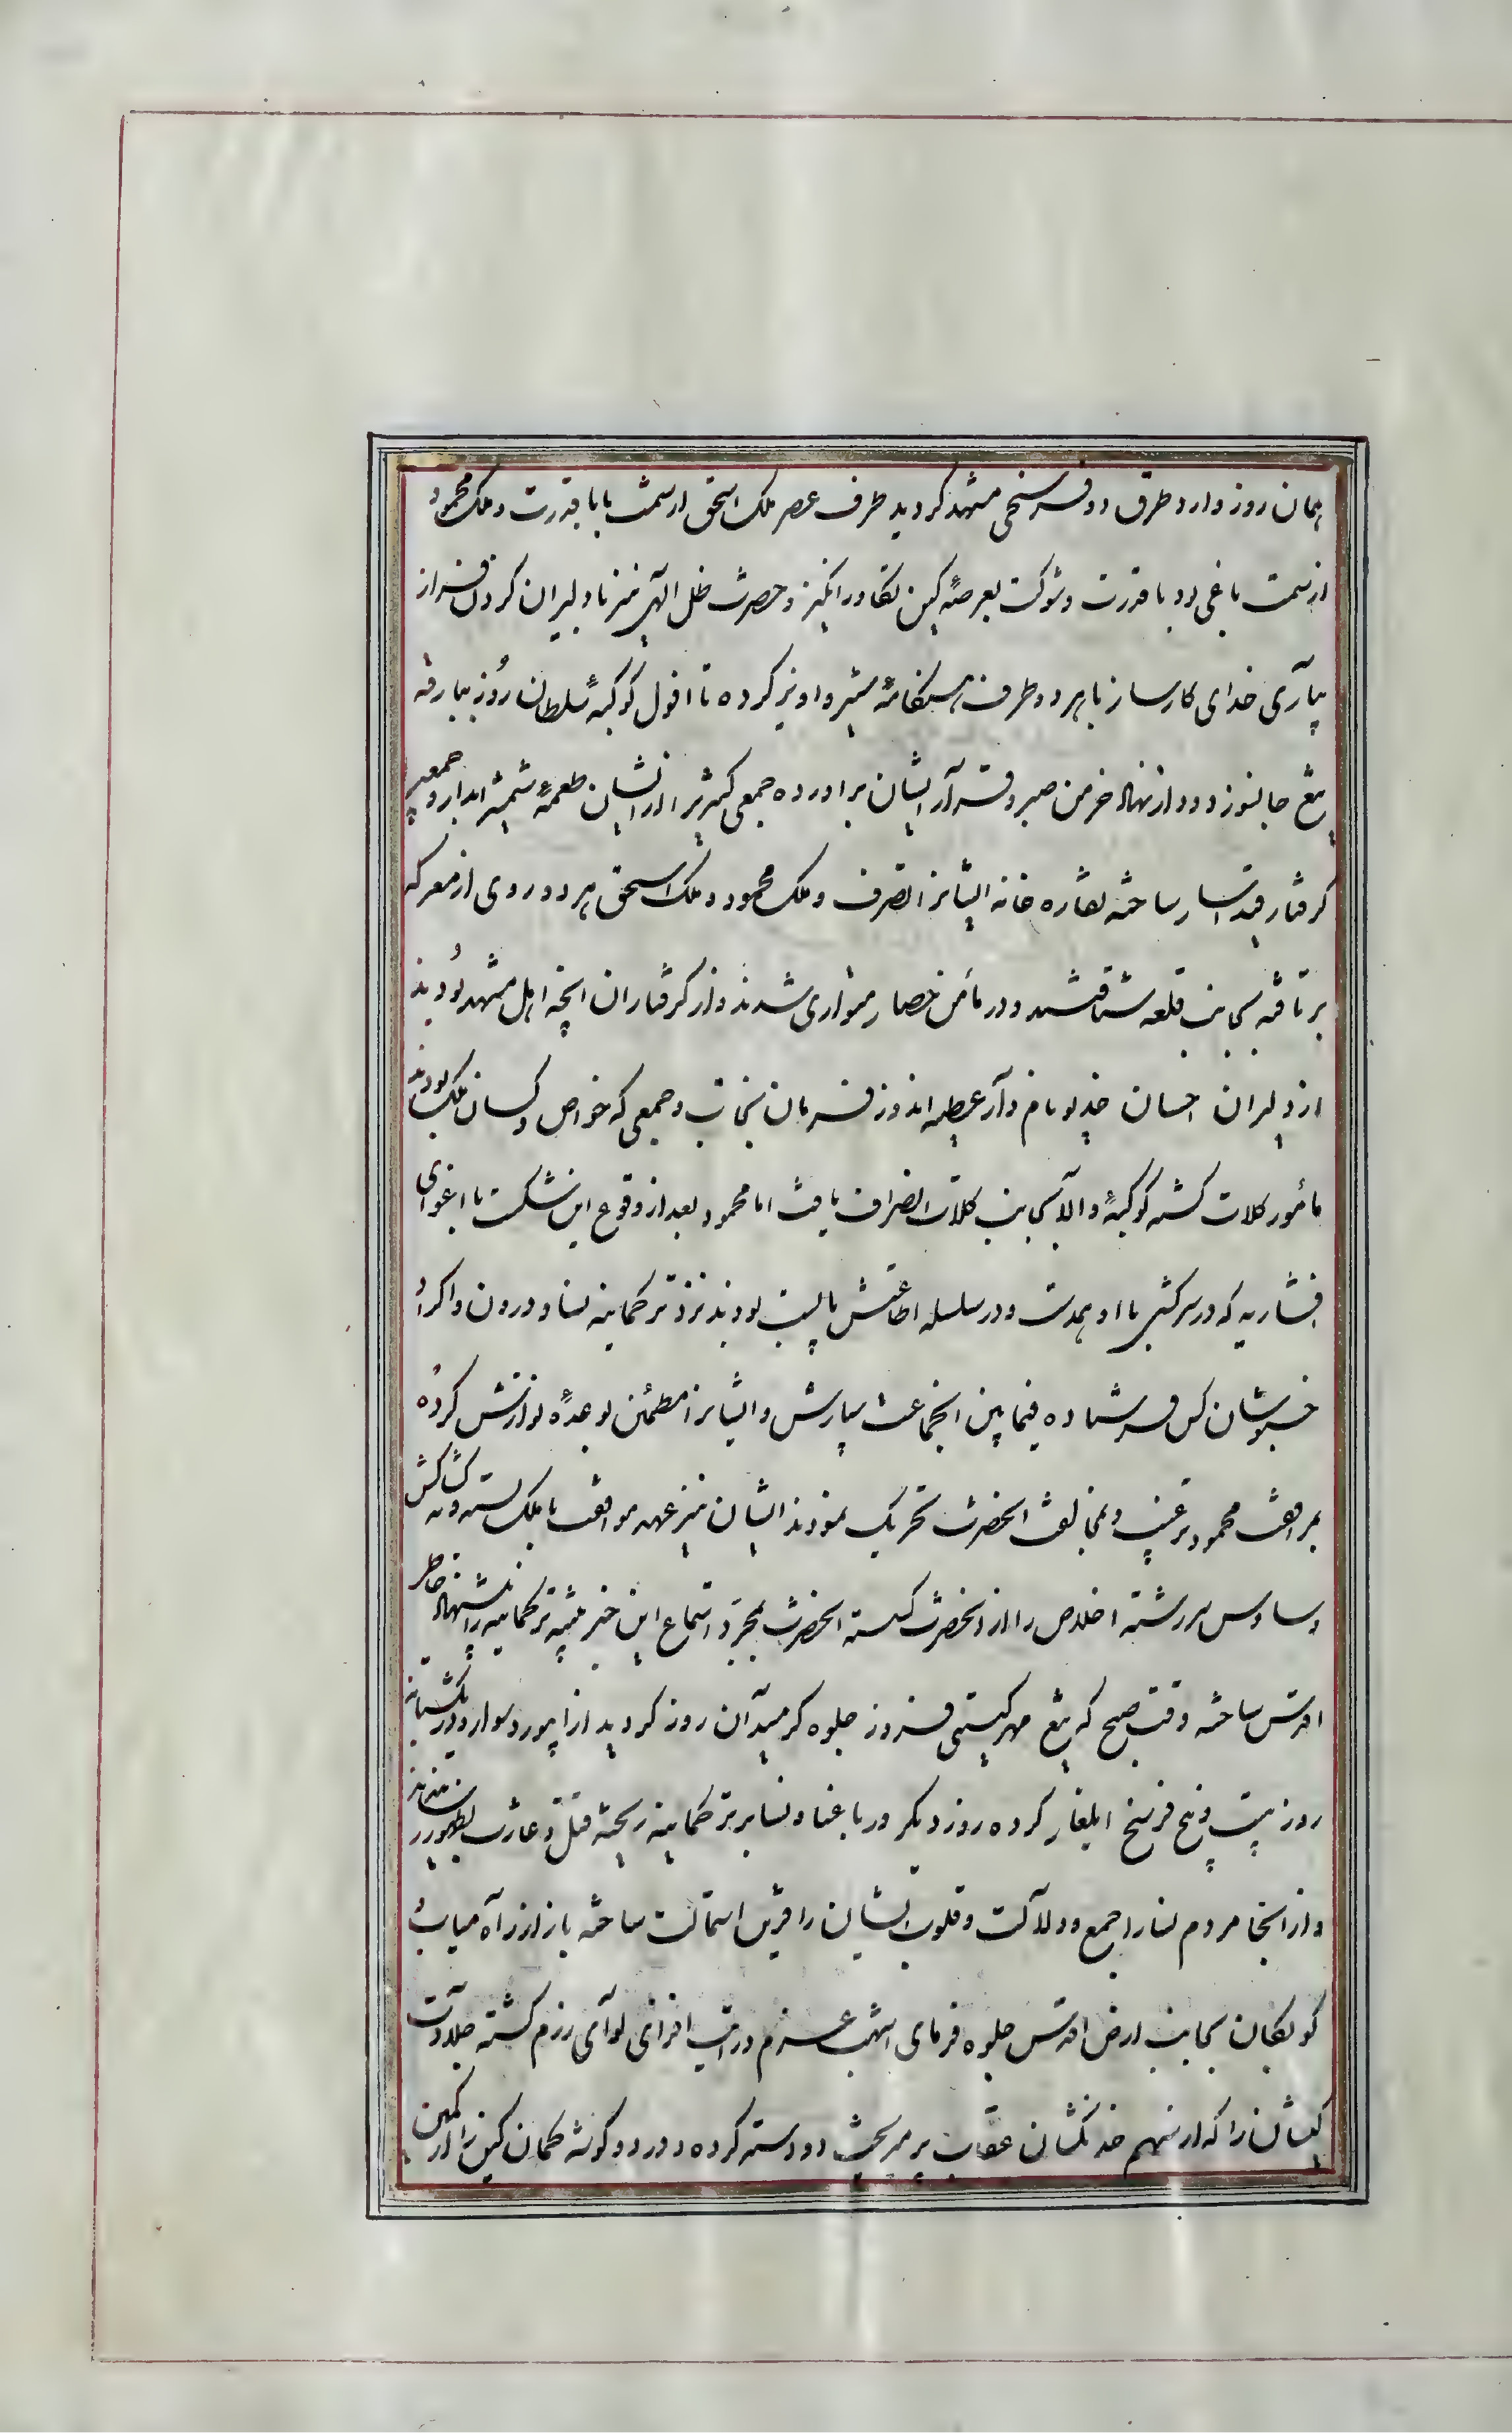 همان روز وارد طرق دو فرسخی مشهد کردید طرف عصر ملک اسحق از سمت بابا قدرت و ملک محمود
از سمت باغی رود با قدرت و شوکت بعرصهٔ کین تکاور انکیز و حضرت ظل الهی نیز با دلیران کردن فراز
بیاری خدای کارساز با هر دو طرف هنکامهٔ ستیز و اویز کرده تا افول کوکبهٔ سلطان روز ببارقه
تیغ جانسوز دود از نهاد خرمن صبر و قرار ایشان براورده جمعی کثیر را از ایشان طعمهٔ شمشیر ابدار و جمعی
کرفتار قید اسار ساخته نقاره خانه ایشانرا تصرف و ملک محمود و ملک اسحق هر دو روی از معرکه
بر تافته بجانب قلعه شتافتند و در مأمن حصار متواری شدند و از کرفتاران انچه اهل مشهد بودند
از دلیران احسان خدیو نامدار عطیه اندوز فرمان نجات و جمعی که خواص و کسان ملک بودند
مأمور کلات کشته کوکبهٔ والا بجانب کلات انصراف یافت اما محمود بعد از وقوع این شکست با اغوای
افشاریه که در سرکشی با او همدست و در سلسله اطاعتش پا بست بودند نزد ترکمانیه نسا و درون و اکراد
خبوشان کس فرستاده فیمابین انجماعت سپارش و ایشانرا مطمئن بوعدهٔ نوازش کرده
بمرافقت محمود ترغیب و بمخالفت انحضرت تحریک نمودند ایشان نیز عهد موافقت با ملک بسته و به کشاکش
وساوس سررشته اخلاص را از انحضرت کسسته انحضرت بمجرد استماع این خبر تنبیه ترکمانیه را پیشنهاد خاطر
اقدس ساخته وقت صبح که تیغ مهر کیتی فروز جلوه کر میدان روز کردید از ابیورد سوار و در یکشبانه
روز بیست و پنج فرسخ ایلغار کرده روز دیکر در باغباد و نسا بر ترکمانیه ریخته قتل و غارت بظهور رسانیدند
و از انجا مردم نسا را جمع و دلالت و قلوب ایشان را قرین استمالت ساخته باز از راه میاب و
کوبکان بجانب ارض اقدس جلوه فرمای اشهب عزم و رایت افرازی لوای رزم کشته جلادت
کیشان را که از سهم خدنکشان عقاب پر میریخت دو دسته کرده در دو کوشه کمان کین را در کمین